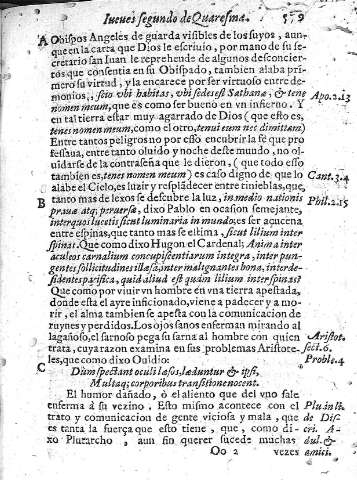 Iueues segundo de Quaresma. 579
A Obispos Angeles de guarda visibles de los suyos, aun-
que en la carta que Dios le escriuio, por mano de su se-
cretario san Iuan le reprehende de algunos desconcier-
tos que consentia en su Obispado, tambien alaba pri-
mero su virtud, y la encarece por ser virtuoso entre de-
monios, scio vbi habitas, vbi sedes est Sathanæ, & tenes Apo. 2.13
nomen meum, que es como ser bueno en vn infierno. Y
en tal tierra estar muy agarrado de Dios (que esto es,
tenes nomen meum, como el otro, tenui eum nec dimittam)
Entre tantos peligros no por esso encubrir la fè que pro
fessaua, entre tanto oluido y noche deste mundo, no ol-
uidarse de la contraseña que le dieron, (que todo esso
tambien es, tenes nomen meum) es caso digno de que lo Cant. 3.4
alabe el Cielo, es luzir y resplãdecer entre tinieblas, que
B tanto mas de lexos se descubre la luz, in medio nationis Phil. 2.15
prauæ atq; peruersæ, dixo Pablo en ocasion semejante,
inter quos lucetis sicut luminaria in mundo, es ser açucena
entre espinas, que tanto mas se estima, sicut lilium inter
spinas. Que como dixo Hugon el Cardenal; Anima inter
aculeos carnalium concupiscentiarum integra, inter pun-
gentes sollicitudines illæsa, inter malignantes bona, inter de-
sidentes pacifica, quid aliud est quàm lilium inter spinas?
Que como por viuir vn hombre en vna tierra apestada,
donde esta el ayre inficionado, viene a padecer y a mo-
rir, el alma tambien se apesta con la comunicacion de
ruynes y perdidos. Los ojos sanos enferman mirando al
lagañoso, el sarnoso pega su sarna al hombre con quien Aristot.
trata, cuya razon examina en sus problemas Aristote- sect. 6.
les, que como dixo Ouidio: Proble. 4
C Dum spectant oculi læsos, læduntur & ipsi,
Multaq; corporibus transitione nocent.
El humor dañado, ò el aliento que del vno sale
enferma à su vezino. Esto mismo acontece con el Plu. in li.
trato y comunicacion de gente viciosa y mala, que de Dis-
es tanta la fuerça que esto tiene, que, como di- cri. A-
xo Plutarcho, aun sin querer sucede muchas dul. &
Oo 2 vezes amici.